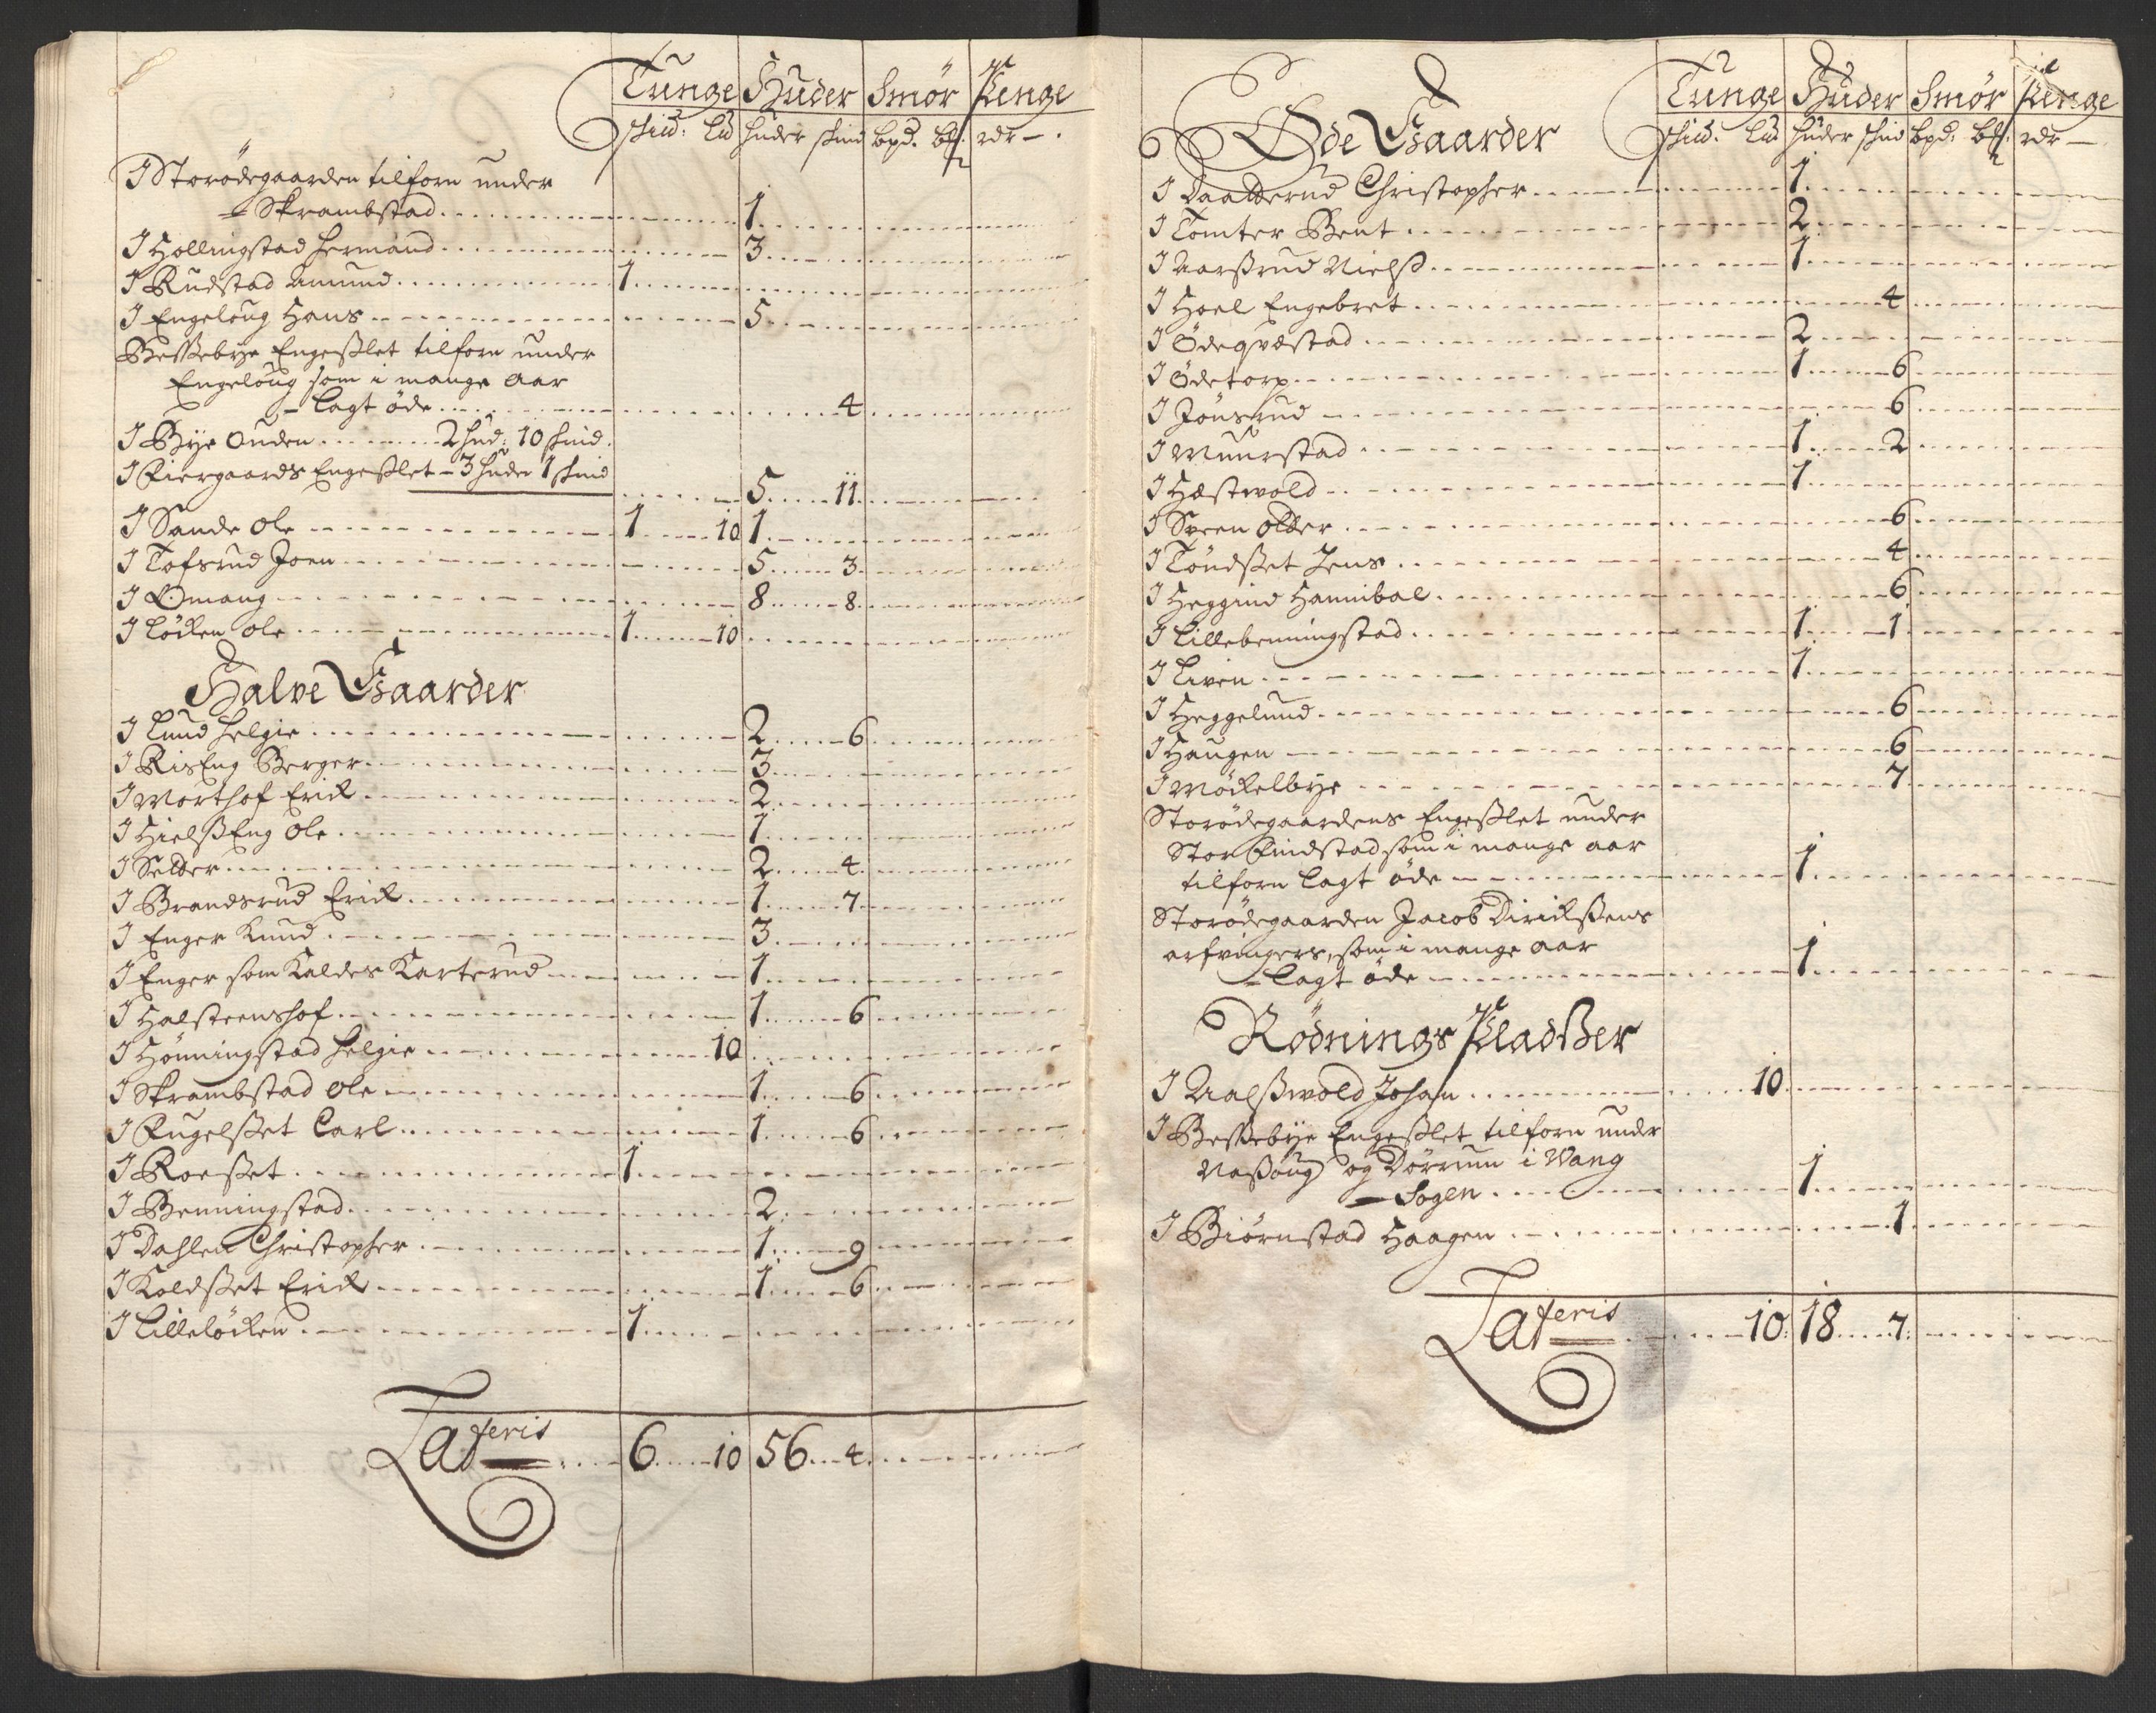 Tunge Huder Smør Penge
skid: lid huder skind bpd. bl: rdr —
I Storødegaarden tilforn under
Skrambstad 1
I Hollingstad Hermand 3
I Rudstad Amund 1
I Engeloug Hans 5
Beskebye Engeslet tilforn under
Engeloug som i mange aar
lagt øde 4
I Bye Ouden 2 hud: 10 skind.
I Fiergaards Engeslet - 3 huder 1 skind
5 11
I Sande Ole 1 10 1
I Tofsrud Joen 5 3
I Omang 8 8
I Løcken Ole 1 10
Halve Gaarder
I Lund Helgie 2 6
I RisEng Berger 3
I Morthof Erick 2
I HielßEng Ole 1
I Selder 2 4
I Brandsrud Erick 1 7
I Enger Knud 3
I Enger som Kaldes Karterud 1
I Halsteenshof 1 6
I Hønningstad Helgie 10
I Skrambstad Ole 1 6
I Fugelset Carl 1 6
I Roeset 1
I Benningstad 2
I Dahlen Christopher 1 9
I Koldset Erick 1 6
I Lilleløcken 1
Lateris 6 10 56 4
Tunge Huder Smør Penge
Øde Gaarder
skid: lid huder skind bpd: bl: rdr —
I Christopher 1
I Tomter Bent 2
I Aarßrud Nielß 1
I Hoel Engebret 4
I Ødeqvestad 2
I Ødetorp 1 6
I Jønsrud 6
I Muurstad 1 2
I Hæstwold 1
I Speen older 6
I Tøndset Jens 4
I Heggind Hannibal 6
I Lillebenningstad 1 1
I Liven 1
I Heggelund 6
I Haugen 6
I Møckelbye 7
Storødegaardens Engeslet under
Stor Findstad som i mange aar
tilforn lagt øde 1
Storødegaarden Jacob Dirichsens
arfvingers, som i mange aar
lagt øde 1
Rødnings Pladßer
I Aalßwold Johan 10
I Beskebye Engeslet tilforn under
Naßoug og Dørrum i Wang
Sogen 1
I Biørnstad Haagen 1
Lateris 10 18 7